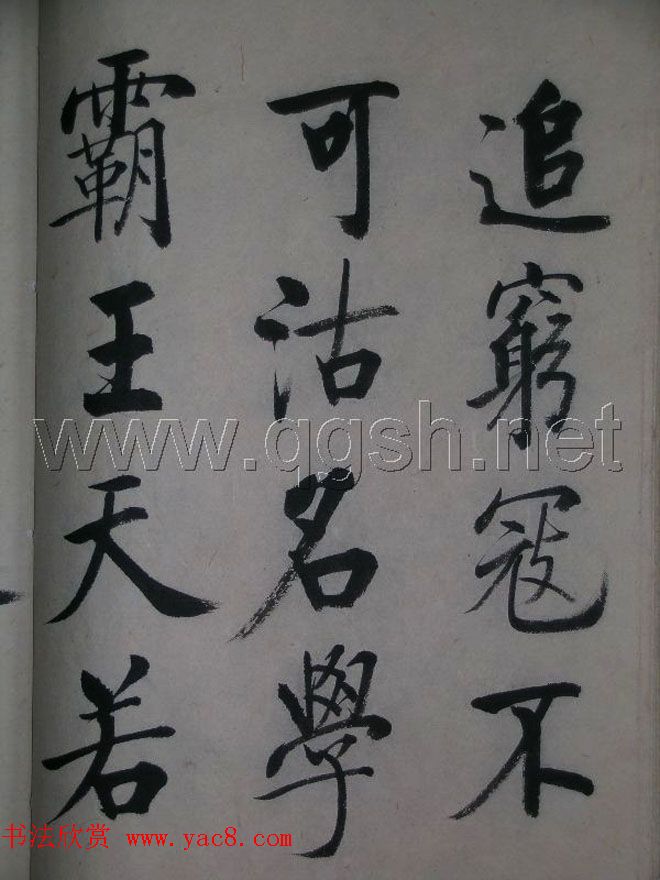 追窮寇不
可沽名學
霸王天若
www.qgsh.net
书法欣赏 www.yac8.com